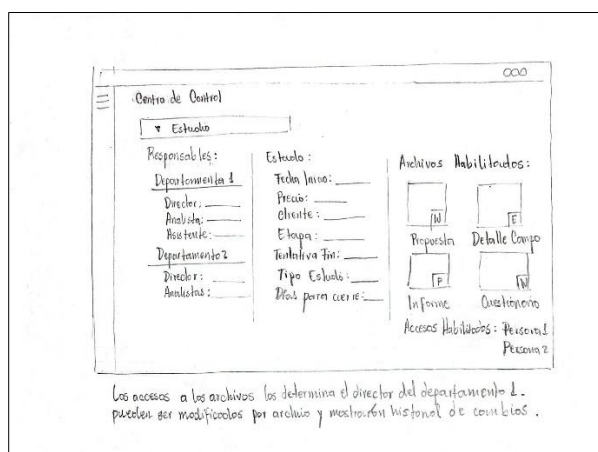 Centro de Control
▼ Estudio
Responsables:
Departamento 1
Director:
Analista:
Asistente:
Departamento 2
Director:
Analistas:
Estado:
Fecha Inicio:
Precio:
Cliente:
Etapa:
Tentativa Fin:
Tipo Estudio:
Días para cierre:
Archivos Habilitados:
W
Propuesta
E
Detalle Campo
P
Informe
W
Cuestionario
Accesos Habilitados: Persona 1
Persona 2
Los accesos a los archivos los determina el director del departamento 1.
pueden ser modificados por archivo y mostrarán historial de cambios.